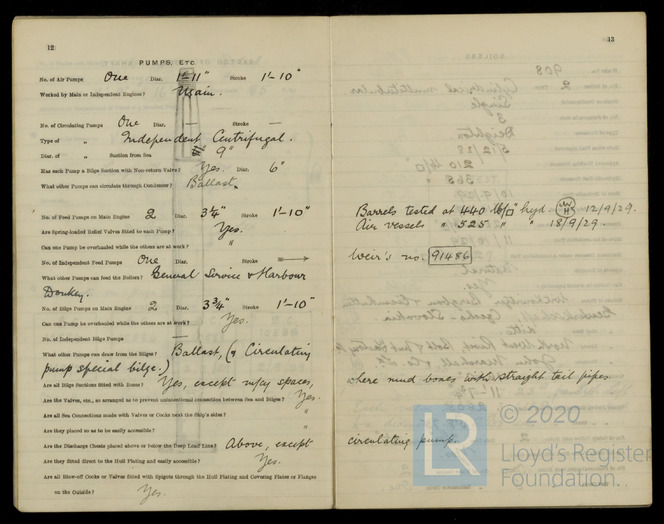 12
PUMPS, ETC
No. of Air Pumps One Diar. 1'-11" Stroke 1'-10"
Worked by Main or Independent Engines? Main.
No. of Circulating Pumps One Diar. — Stroke —
Type of „ Independent Centrifugal.
Diar. of „ Suction from Sea 9"
Has each Pump a Bilge Suction with Non-return Valve? Yes. Diar. 6"
What other Pumps can circulate through Condenser? Ballast.
No. of Feed Pumps on Main Engine 2 Diar. 3¼" Stroke 1'-10"
Are Spring-loaded Relief Valves fitted to each Pump? Yes.
Can one Pump be overhauled while the others are at work? "
No. of Independent Feed Pumps One Diar. Stroke
What other Pumps can feed the Boilers? General Service & Harbour
Donkey.
No. of Bilge Pumps on Main Engine 2 Diar. 3¾" Stroke 1'-10"
Can one Pump be overhauled while the others are at work? Yes.
No. of Independent Bilge Pumps —
What other Pumps can draw from the Bilges? Ballast, (& Circulating
pump special bilge.)
Are all Bilge Suctions fitted with Roses? Yes, except m/cy spaces,
Are the Valves, etc., so arranged as to prevent unintentional connection between Sea and Bilges? Yes.
Are all Sea Connections made with Valves or Cocks next the Ship's sides? "
Are they placed so as to be easily accessible? "
Are the Discharge Chests placed above or below the Deep Load Line? Above, except
Are they fitted direct to the Hull Plating and easily accessible? Yes.
Are all Blow-off Cocks or Valves fitted with Spigots through the Hull Plating and Covering Plates or Flanges
on the Outside? Yes.
13
Barrels tested at 440 lb/□" hyd. 12/9/29.
Air vessels " 525 " " 18/9/29.
Weir's no. 91486
where mud boxes with straight tail pipes.
circulating pump.
LR © 2020
Lloyd's Register
Foundation.